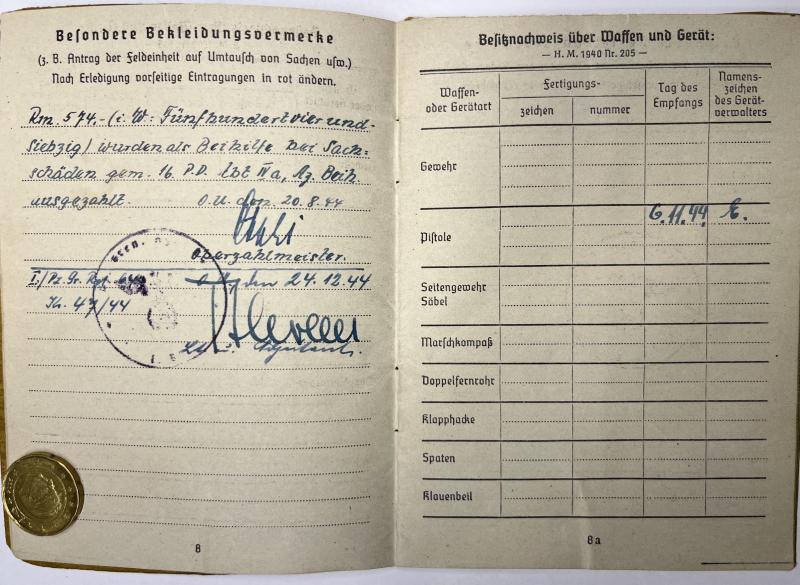 Besondere Bekleidungsvermerke
(z. B. Antrag der Feldeinheit auf Umtausch von Sachen usw.)
Nach Erledigung vorseitige Eintragungen in rot ändern.
Rm. 574.- (i. W: Fünfhundertvierund-
siebzig) wurden als Beihilfe bei Sach-
schäden gem. 16. P.D. Abt IVa, Az. Beih.
ausgezahlt. O.U. den 20.8.44
Oberzahlmeister.
I./Pz. Gr. Rgt. den 24.12.44
47/44
8
Besitznachweis über Waffen und Gerät:
— H. M. 1940 Nr. 205 —
Waffen- oder Gerätart
Fertigungs-
zeichen
nummer
Tag des Empfangs
Namens- zeichen des Gerät- verwalters
Gewehr
Pistole 6.11.44
Seitengewehr
Säbel
Marschkompaß
Doppelfernrohr
Klapphacke
Spaten
Klauenbeil
8a